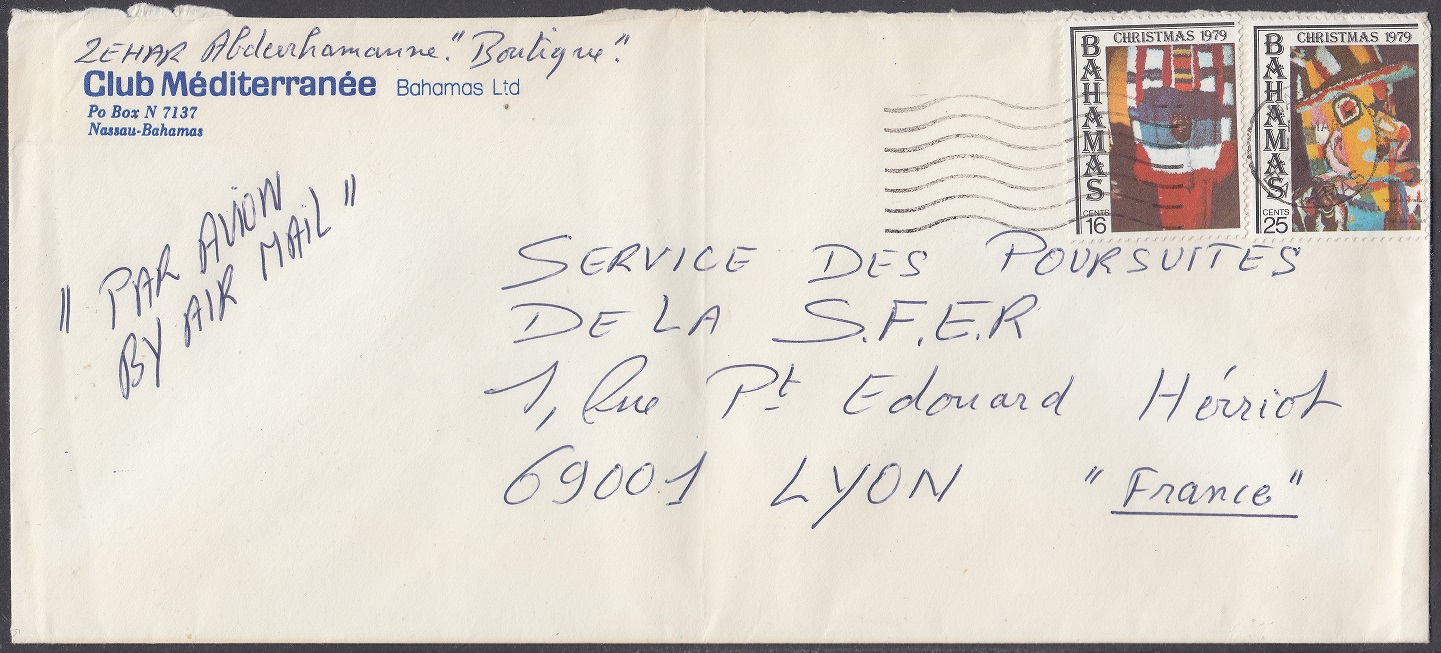 ZEHAR Abderrhamanne. "Boutique".
Club Méditerranée Bahamas Ltd
Po Box N 7137
Nassau-Bahamas
BAHAMAS
CHRISTMAS 1979
CENTS
16
BAHAMAS
CHRISTMAS 1979
CENTS
25
" PAR AVION
BY AIR MAIL "
SERVICE DES POURSUITES
DE LA S.F.E.R
1, Rue Pt Edouard Hérriot
69001 LYON "France"